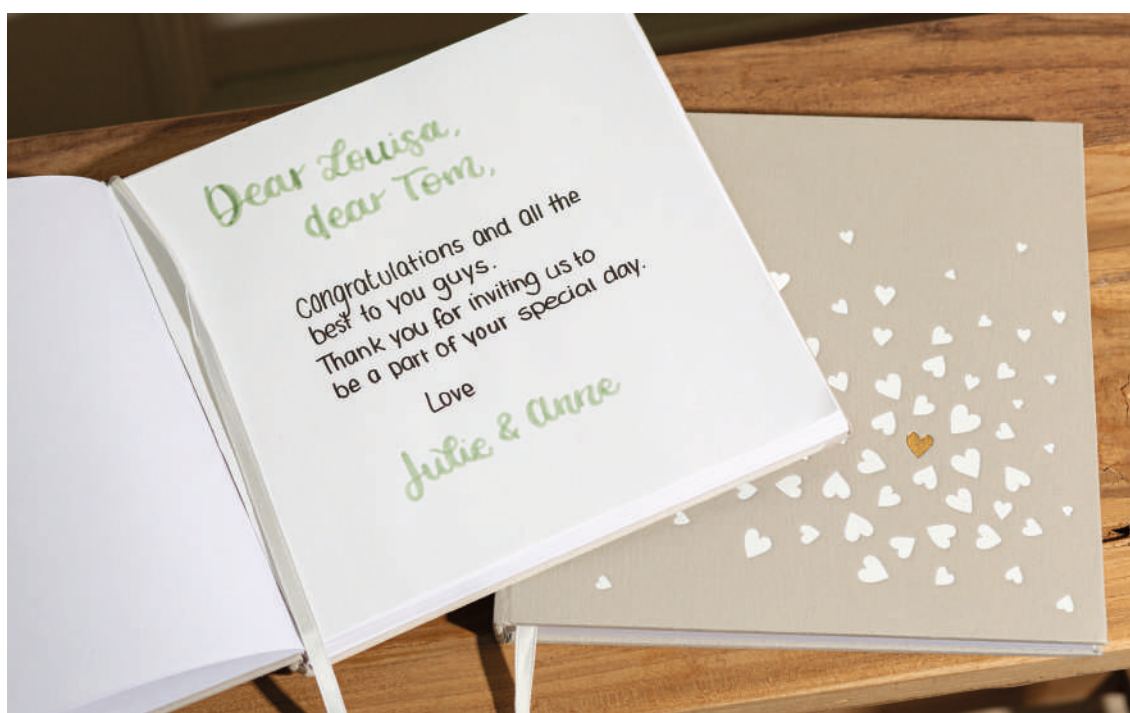 Dear Louisa,
dear Tom,
congratulations and all the
best to you guys.
Thank you for inviting us to
be a part of your special day.
Love
Julie & Anne